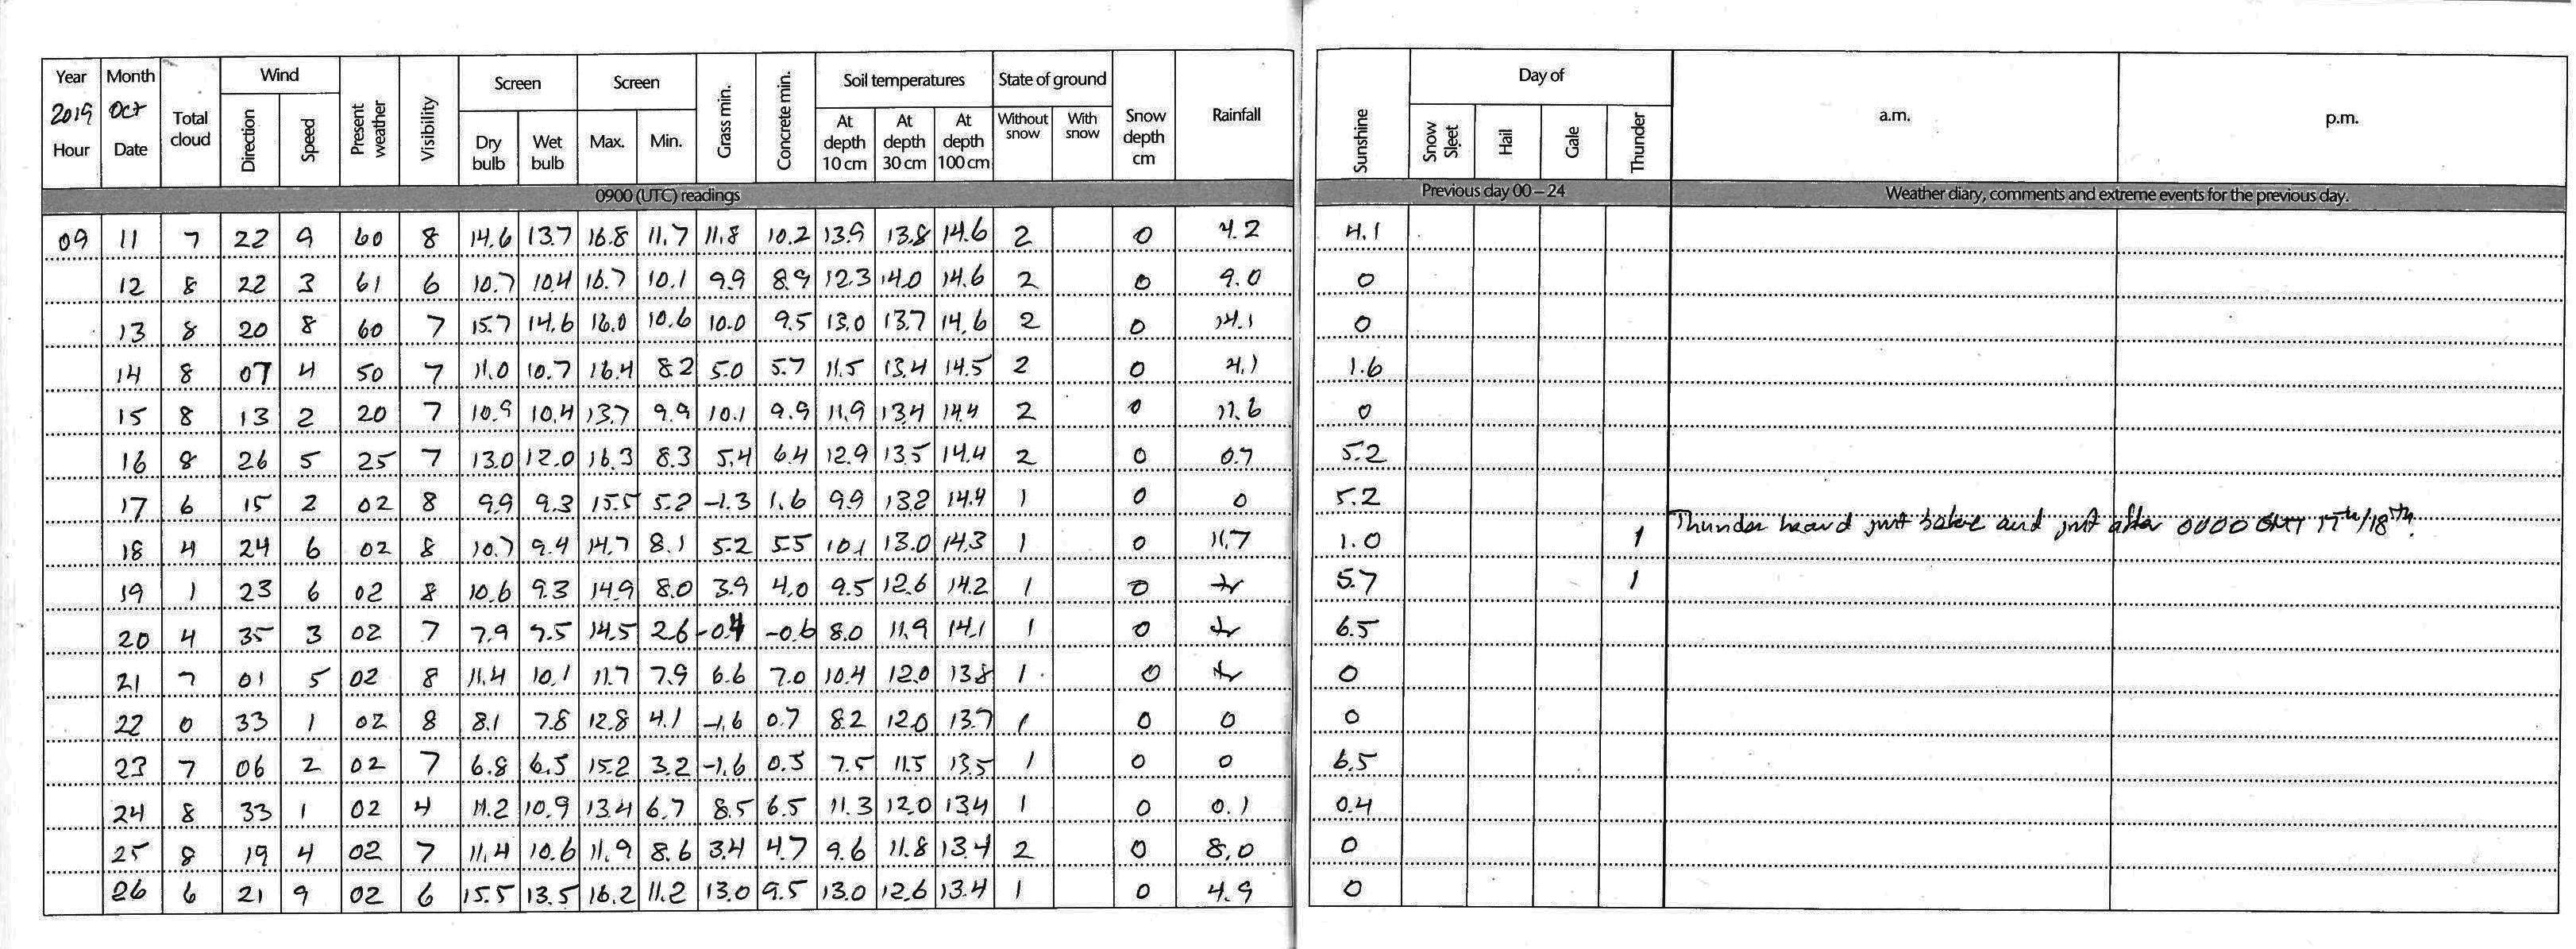 Year Month Total cloud Wind Present weather Visibility Screen Screen Grass min. Concrete min. Soil temperatures State of ground Snow depth cm Rainfall Sunshine Day of a.m. p.m.
2019 Oct Direction Speed Dry bulb Wet bulb Max. Min. At depth 10 cm At depth 30 cm At depth 100 cm Without snow With snow Snow Sleet Hail Gale Thunder
Hour Date
0900 (UTC) readings Previous day 00 – 24 Weather diary, comments and extreme events for the previous day.
09 11 7 22 9 60 8 14.6 13.7 16.8 11.7 11.8 10.2 13.9 13.8 14.6 2 0 4.2 4.1
12 8 22 3 61 6 10.7 10.4 16.7 10.1 9.9 8.9 12.3 14.0 14.6 2 0 9.0 0
13 8 20 8 60 7 15.7 14.6 16.0 10.6 10.0 9.5 13.0 13.7 14.6 2 0 14.1 0
14 8 07 4 50 7 11.0 10.7 16.4 8.2 5.0 5.7 11.5 13.4 14.5 2 0 4.1 1.6
15 8 13 2 20 7 10.9 10.4 13.7 9.9 10.1 9.9 11.9 13.4 14.4 2 0 11.6 0
16 8 26 5 25 7 13.0 12.0 16.3 8.3 5.4 6.4 12.9 13.5 14.4 2 0 0.7 5.2
17 6 15 2 02 8 9.9 9.3 15.5 5.2 -1.3 1.6 9.9 13.2 14.4 1 0 0 5.2
Thunder heard just before and just after 0000 GMT 17th/18th.
18 4 24 6 02 8 10.7 9.4 14.7 8.1 5.2 5.5 10.1 13.0 14.3 1 0 11.7 1.0 1
19 1 23 6 02 8 10.6 9.3 14.9 8.0 3.9 4.0 9.5 12.6 14.2 1 0 tr 5.7 1
20 4 35 3 02 7 7.9 7.5 14.5 2.6 -0.4 -0.6 8.0 11.9 14.1 1 0 tr 6.5
21 7 01 5 02 8 11.4 10.1 11.7 7.9 6.6 7.0 10.4 12.0 13.8 1 0 tr 0
22 0 33 1 02 8 8.1 7.8 12.8 4.1 -1.6 0.7 8.2 12.0 13.7 1 0 0 0
23 7 06 2 02 7 6.8 6.5 15.2 3.2 -1.6 0.5 7.5 11.5 13.5 1 0 0 6.5
24 8 33 1 02 4 11.2 10.9 13.4 6.7 8.5 6.5 11.3 12.0 13.4 1 0 0.1 0.4
25 8 19 4 02 7 11.4 10.6 11.9 8.6 3.4 4.7 9.6 11.8 13.4 2 0 8.0 0
26 6 21 9 02 6 15.5 13.5 16.2 11.2 13.0 9.5 13.0 12.6 13.4 1 0 4.9 0